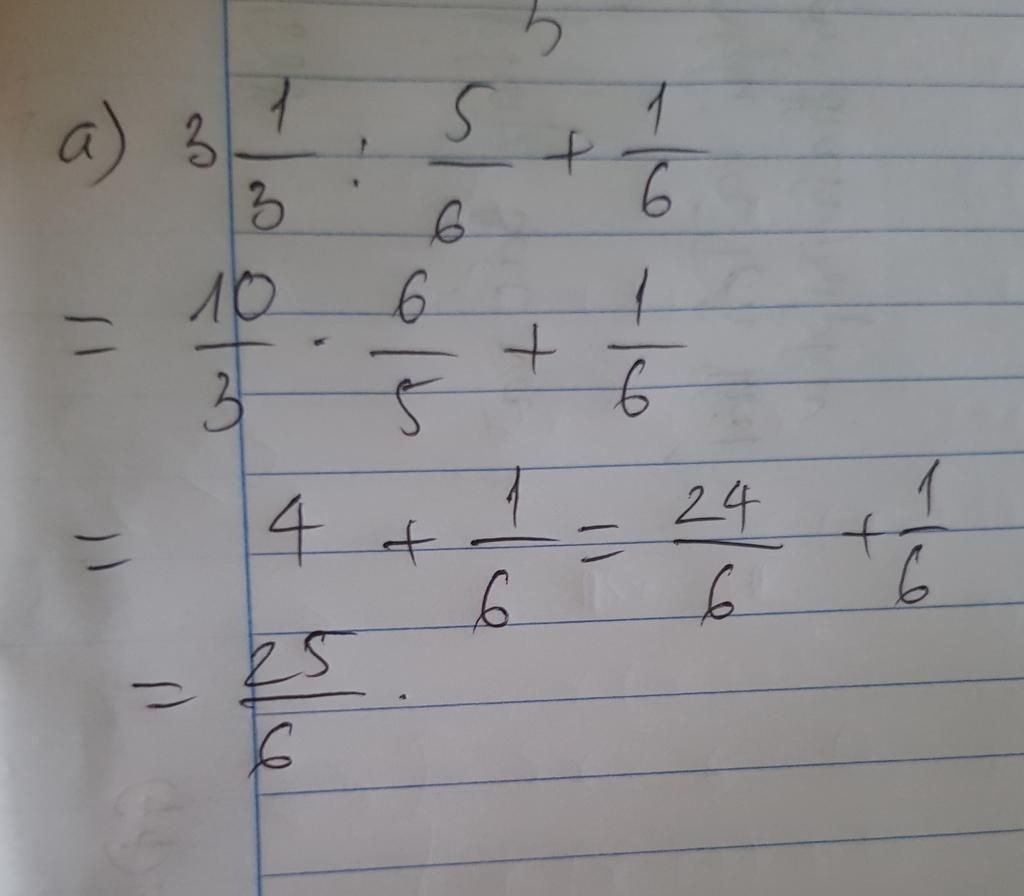 a) 3 1/3 : 5/6 + 1/6
= 10/3 · 6/5 + 1/6
= 4 + 1/6 = 24/6 + 1/6
= 25/6 .